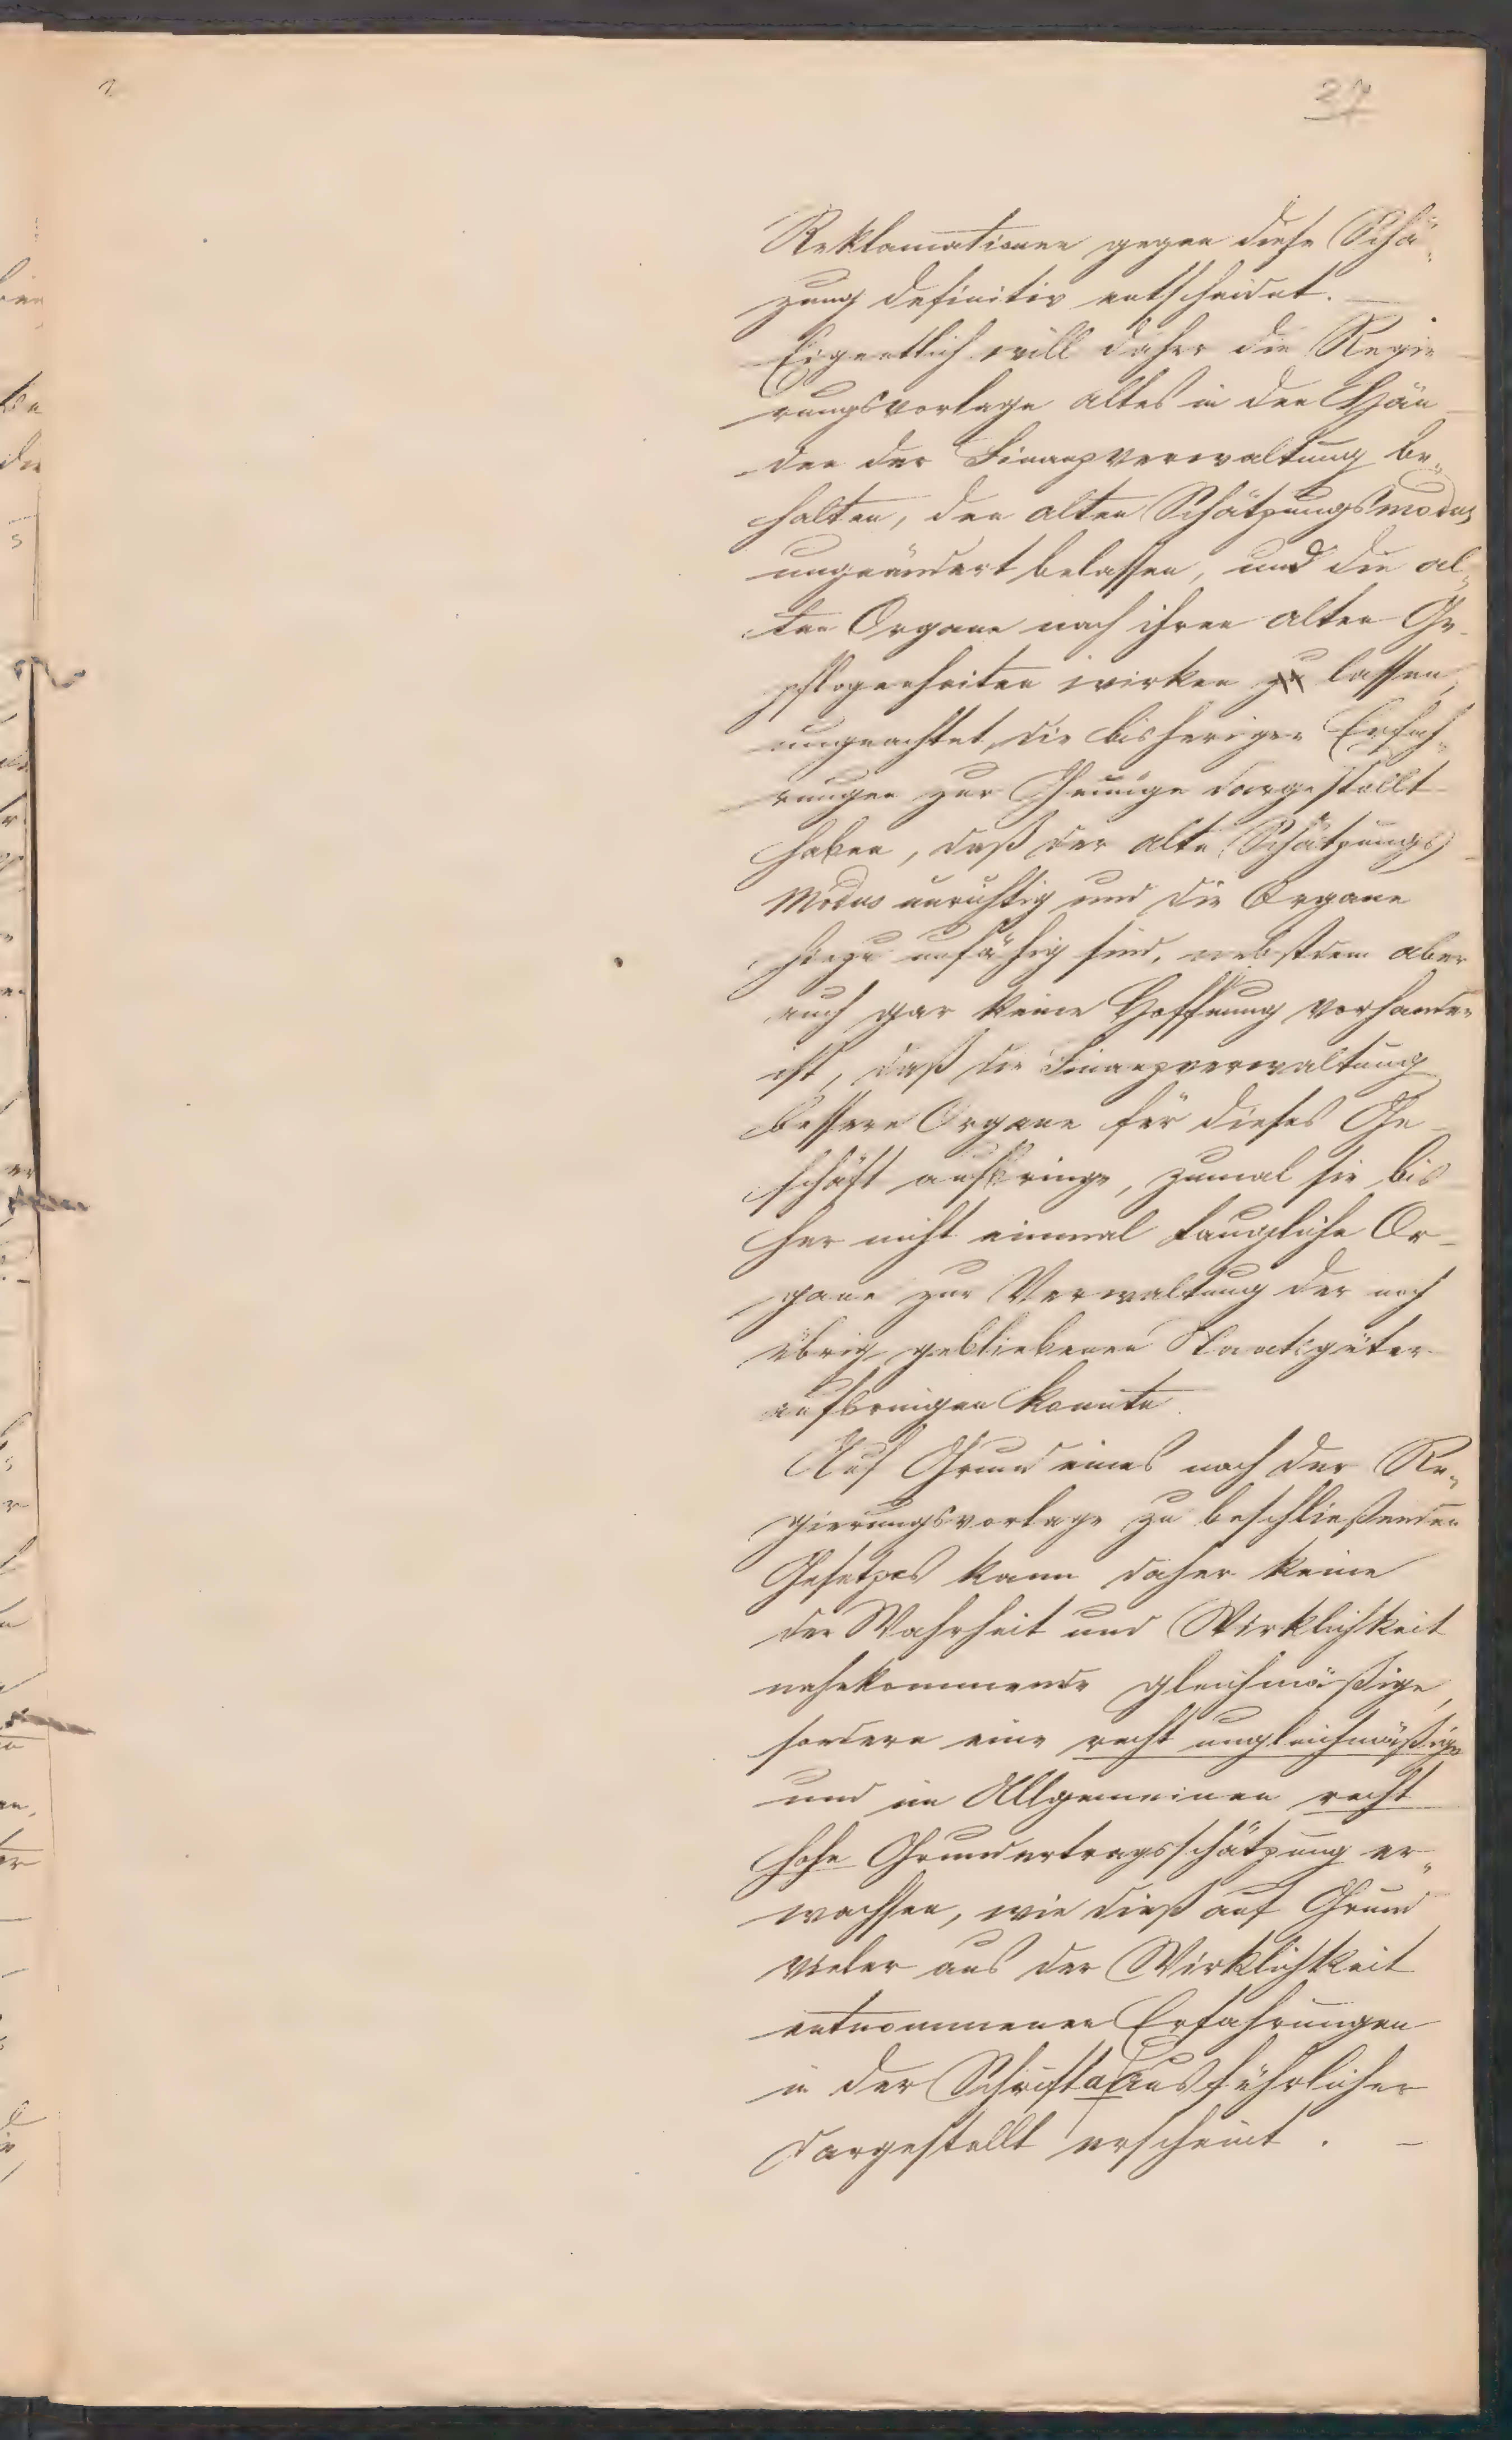 37
Reklamationen gegen diese Schä„
zung definitiv entscheidet. —
Eigentlich will daher die Regie
rungsvorlage altes in den Hän
den der Finanzverwaltung be„
halten, den alten Schätzungsmodus
ungeändert belassen, und die al„
ten Organe nach ihren alten Ge
pflogenheiten wirken zu lassen,
ungeachtet die bisherigen Erfah„
rungen zur Genüge dargestellt
haben, daß der alte Schätzungs
Modus unrichtig und die Organe
hiezu unfähig sind, nebstdem aber
auch gar keine Hoffnung vorhanden
ist, daß die Finanzverwaltung
bessere Organe für dieses Ge
schäft aufbringe, zumal sie bis
her nicht einmal taugliche Or
gane zur Verwaltung der noch
übrig gebliebenen Staatsgüter
aufbringen konnte.
Auf Grund eines nach der Re„
gierungsvorlage zu beschließenden
Gesetzes kann daher keine
der Wahrheit und Wirklichkeit
nahekommende gleichmäßige,
sondern eine recht ungleichmäßige
und im Allgemeinen recht
hohe Grundertragsschätzung er„
wachsen, wie dieß auf Grund
vieler aus der Wirklichkeit
entnommenen Erfahrungen
in der Schrift a ausführlicher
dargestellt erscheint. —